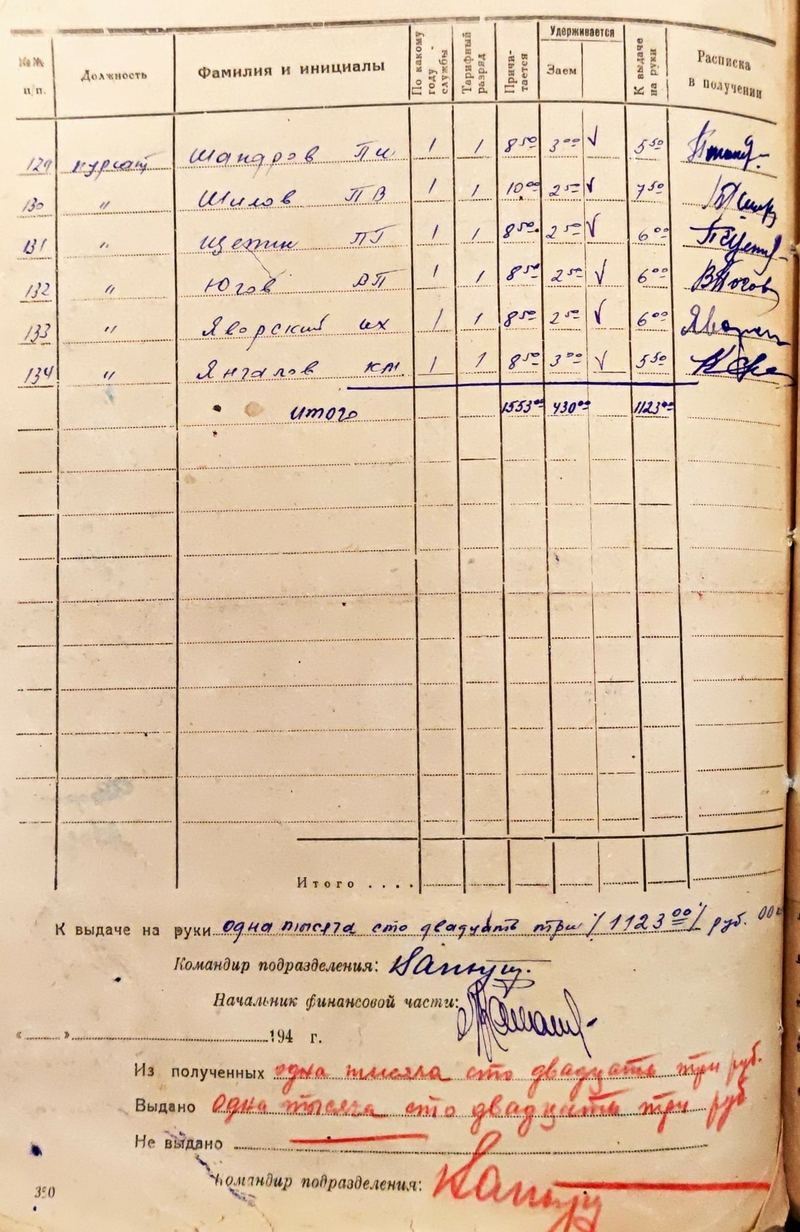 №№ п/п. Должность Фамилия и инициалы По какому году службы Тарифный разряд Причитается Удерживается Заем К выдаче на руки Расписка в получении
129 курсант Шандров ПИ 1 1 8 50 3 00 √ 5 50
130 " Шилов ПВ 1 1 10 00 2 50 √ 7 50
131 " Щетин ПГ 1 1 8 50 2 50 √ 6 00
132 " Югов ВП 1 1 8 50 2 50 √ 6 00
133 " Яворский ИХ 1 1 8 50 2 50 √ 6 00
134 " Янгалов КМ 1 1 8 50 3 00 √ 5 50
Итого 1553 00 430 00 1123 00
Итого ....
К выдаче на руки одна тысяча сто двадцать три /1123 00/ руб. 00
Командир подразделения:
Начальник финансовой части:
" " 194 г.
Из полученных одна тысяча сто двадцать три руб.
Выдано одна тысяча сто двадцать три руб
Не выдано
Командир подразделения:
350